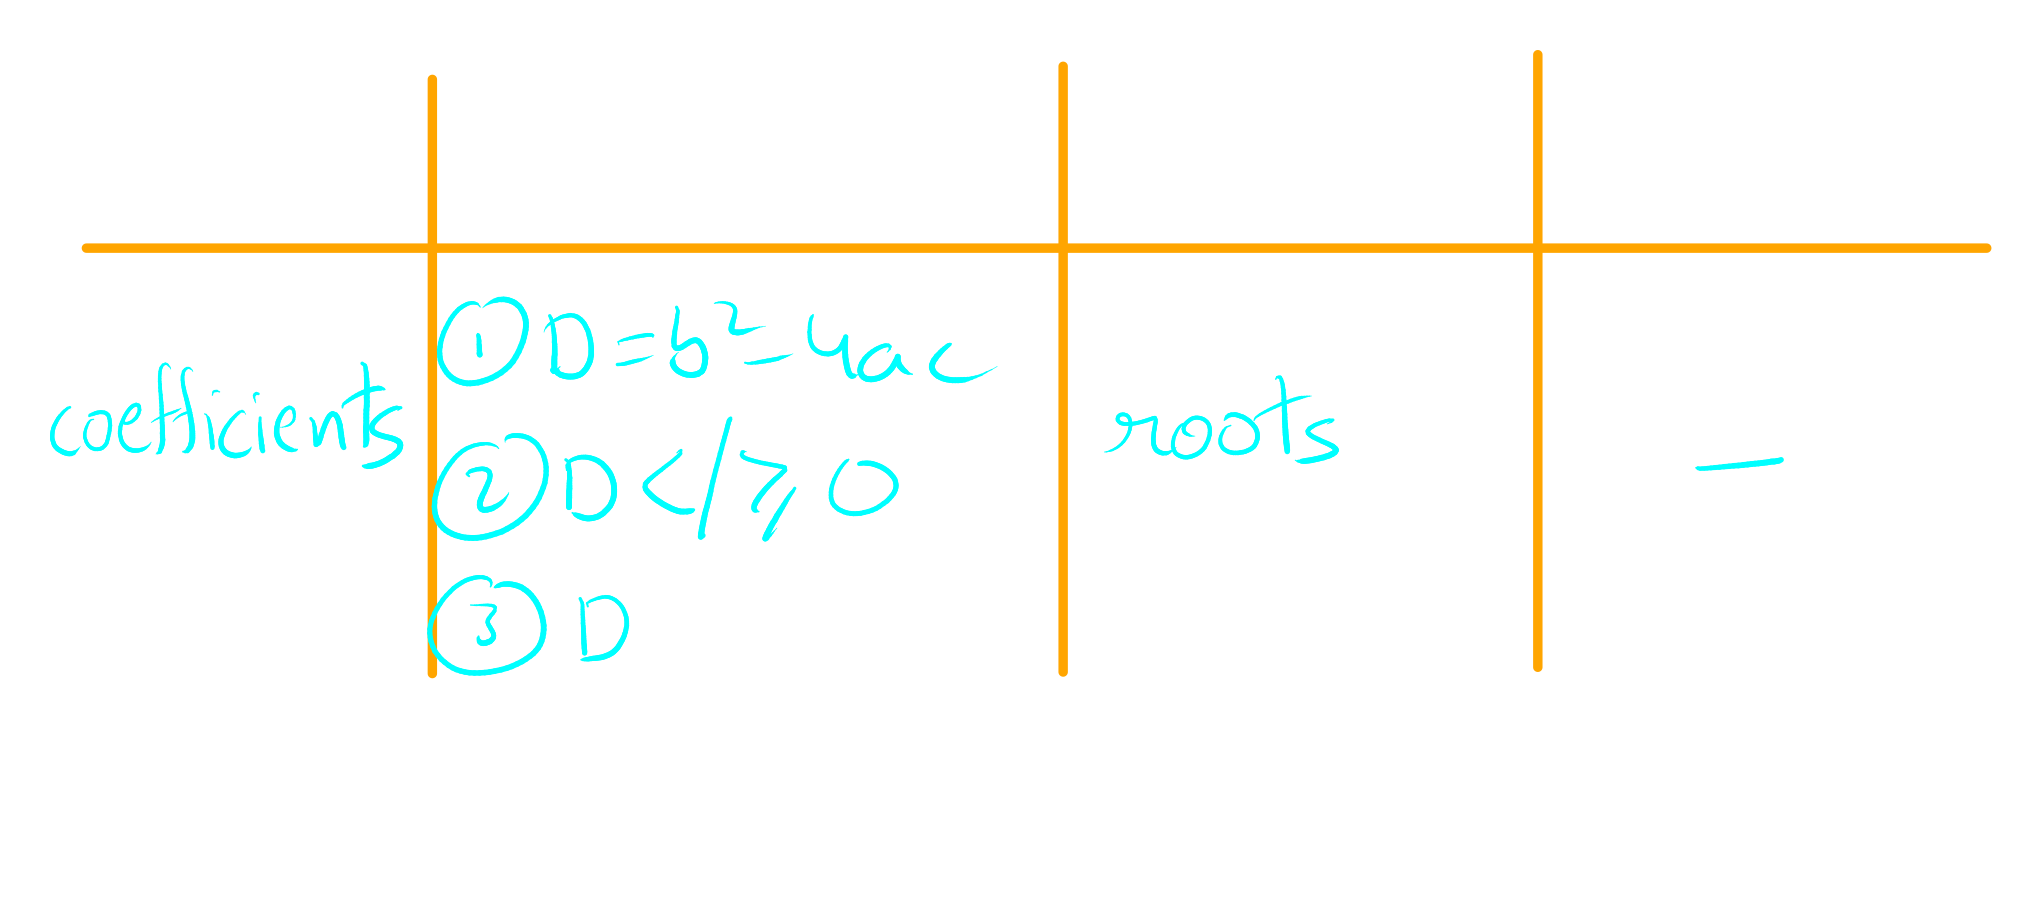 coefficients
① D = b² - 4ac
② D </⩾ 0
③ D
roots
—